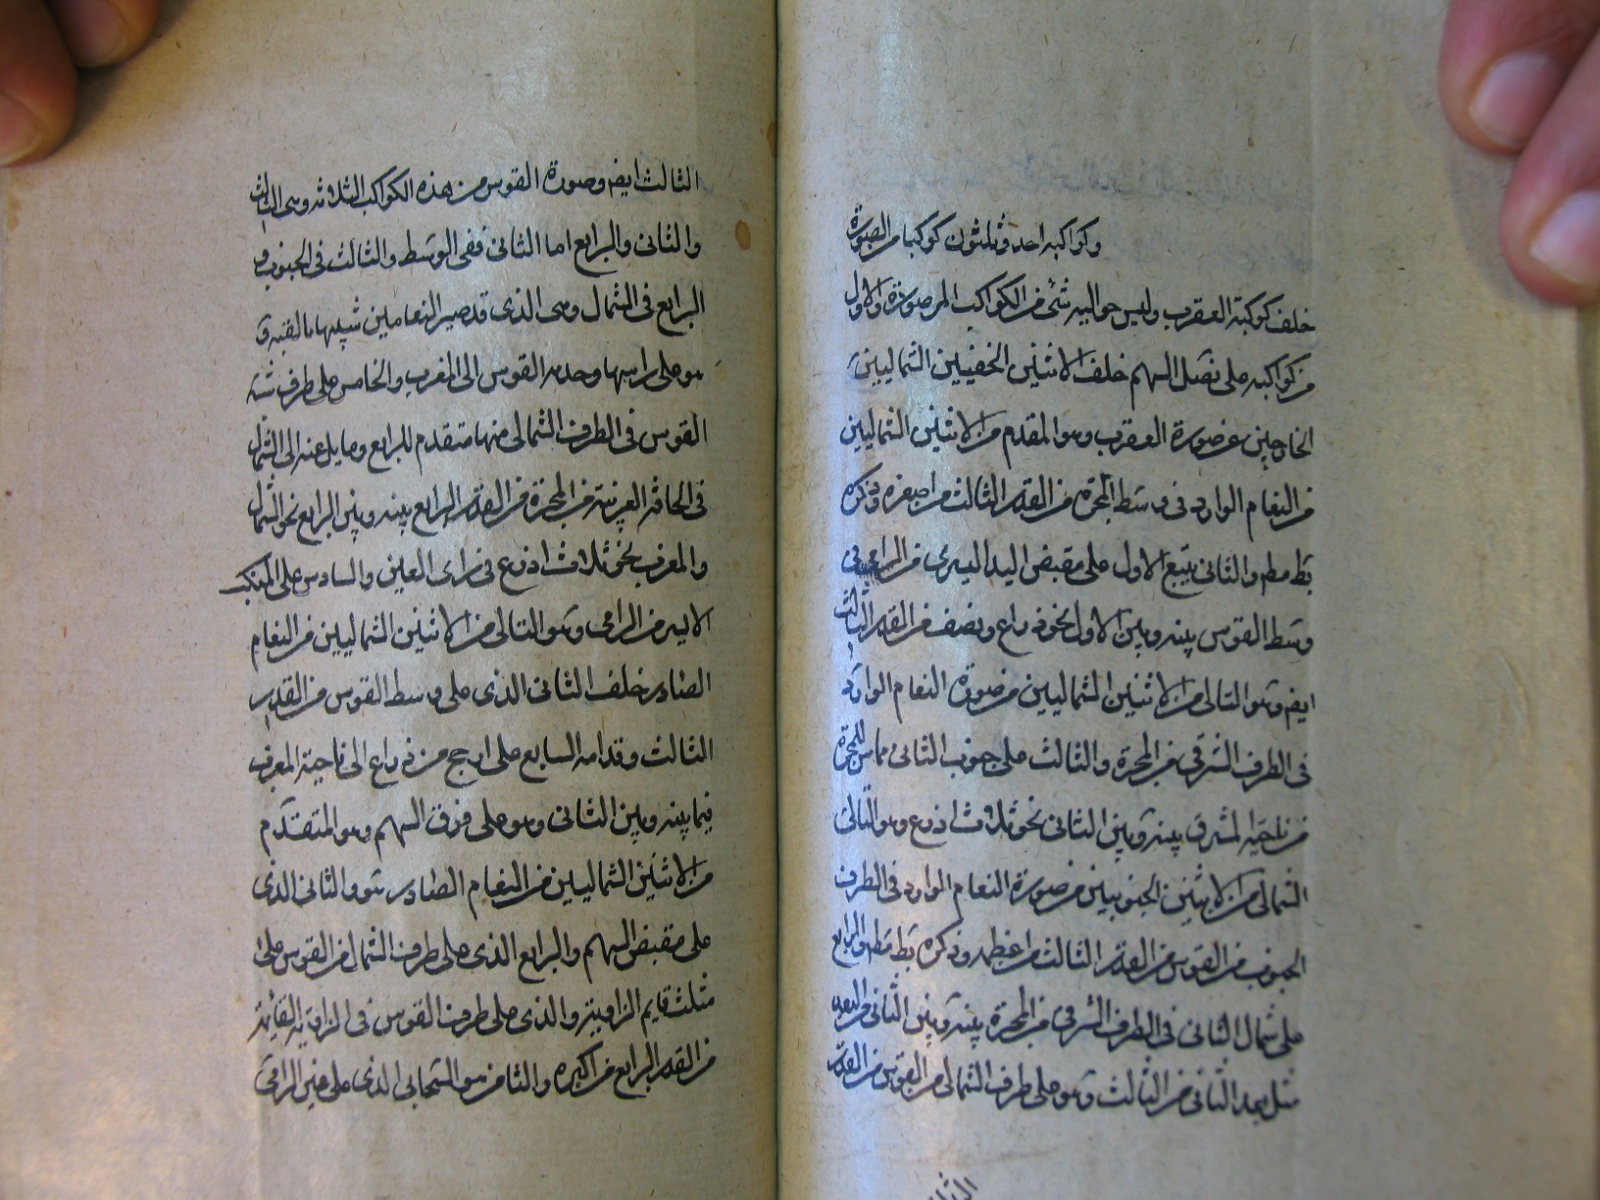 وكواكبه احد وثلثون كوكبا من الصورة
خلف كوكبة العقرب وليس حواليه شئ من الكواكب المرصودة والاول
من كواكبه على نصل السهم خلف الاثنين الخفيين الشماليين
الخارجين عن صورة العقرب وهو المقدم من الاثنين الشماليين
من النعام الوارد فى وسط المجرة من القدر الثالث من اصغره وذكره
بطلميوس والثانى يتبع الاول على مقبض اليد اليسرى من الرامى فى
وسط القوس بينه وبين الاول نحو ذراع ونصف من القدر الثالث
ايضا وهو التالى من الاثنين الشماليين من صورة النعام الوارد
فى الطرف الشرقى من المجرة والثالث على جنوب الثانى مماس للمجرة
من ناحية المشرق بينه وبين الثانى نحو ثلاث اذرع وهو التالى
الشمالى من الاثنين الجنوبيين من صورة النعام الوارد فى الطرف
الجنوب من القوس من القدر الثالث من اعظمه وذكره والرابع
على شمال الثانى فى الطرف الشرقى من المجرة بينه وبين الثانى من البعد
مثل بعد الثانى من الثالث وهو على طرف الشمالى من القوس من القدر
الثالث ايضا وصورة القوس من هذه الكواكب الثلاثه وهى الثالث
والثانى والرابع اما الثانى ففى الوسط والثالث فى الجنوب و
الرابع فى الشمال وهى الذى قد صير النعامين شبيها بالقبة و
هو على راسها وحدبة القوس الى المغرب والخامس على طرف سية
القوس فى الطرف الشمالى منها متقدم للرابع ومايل عنه الى الشمال
فى الحافة الغربية من المجرة من القدر الرابع بينه وبين الرابع نحو الشمال
والمغرب نحو ثلاث اذرع فى راى العين والسادس على المنكب
الايسر من الرامى وهو التالى من الاثنين الشماليين من النعام
الصادر خلف الثانى الذى على وسط القوس من القدر
الثالث وقدامه السابع على ارجح من ذراع الى ناحية المغرب
فيما بينه وبين الثانى وهو على فوق السهم وهو المتقدم
من الاثنين الشماليين من النعام الصادر هو والثانى الذى
على مقبض السهم والرابع الذى على طرف الشمال من القوس على
مثلث قايم الزاوية والذى على طرف القوس فى الزاوية القائمة
من القدر الرابع من اكبره والثامن هو السحابى الذى على عين الرامى